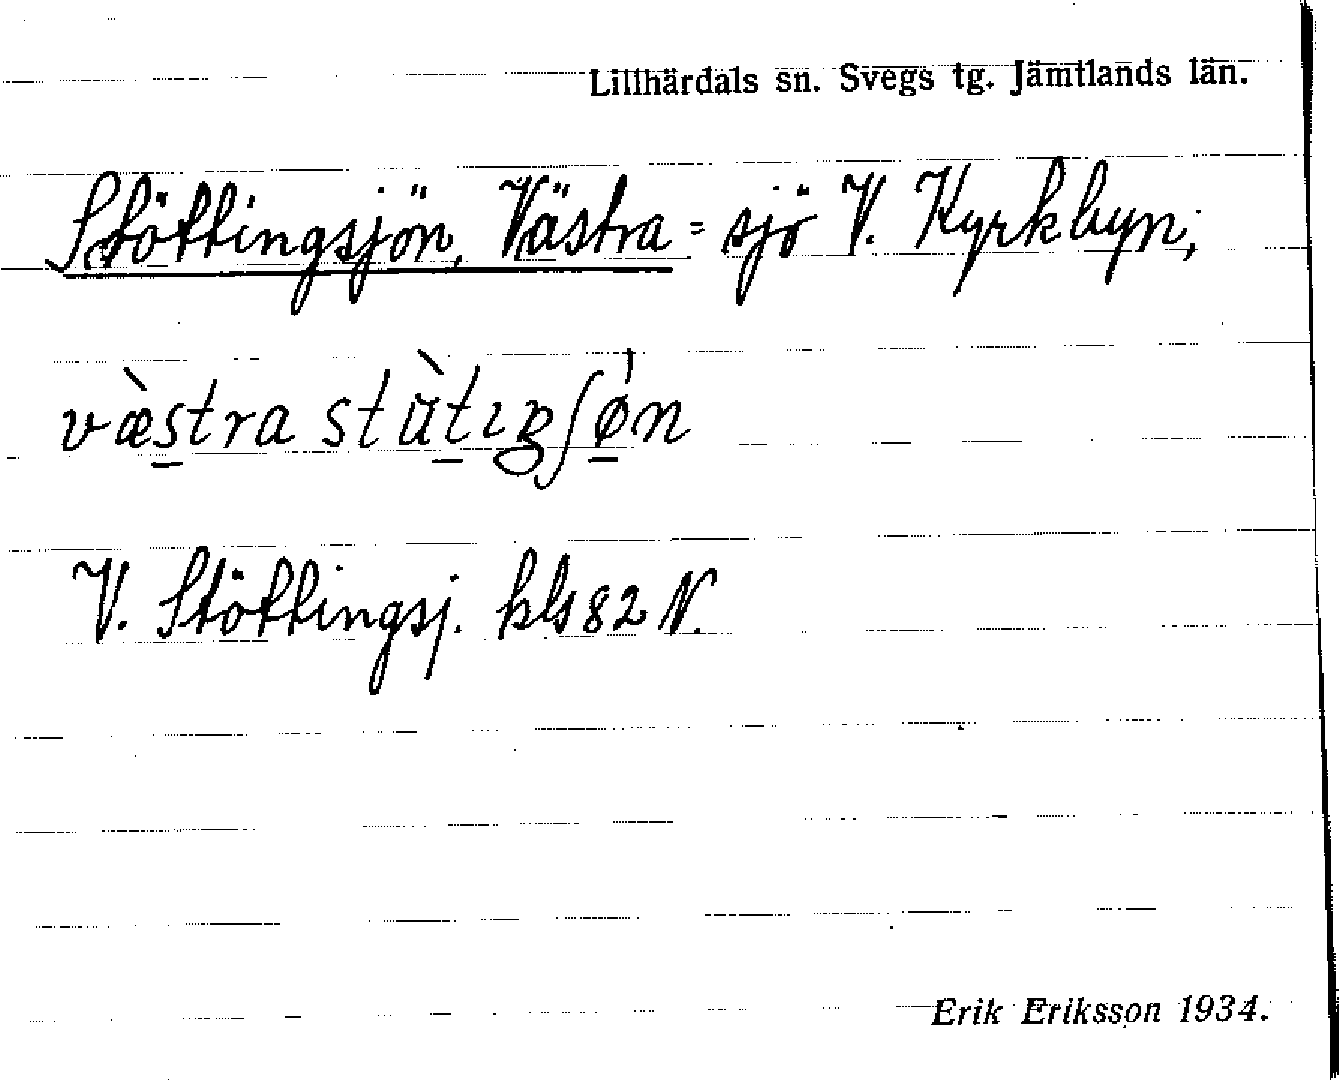 Lillhärdals sn. Svegs tg. Jämtlands län.
Stöttingsjön, Västra = sjö V. Kyrkbyn;
væ̀s̲tra stùt̲ɩŋʃǿ̲n
V. Stöttingsj. kbl 82 N.
Erik Eriksson 1934.